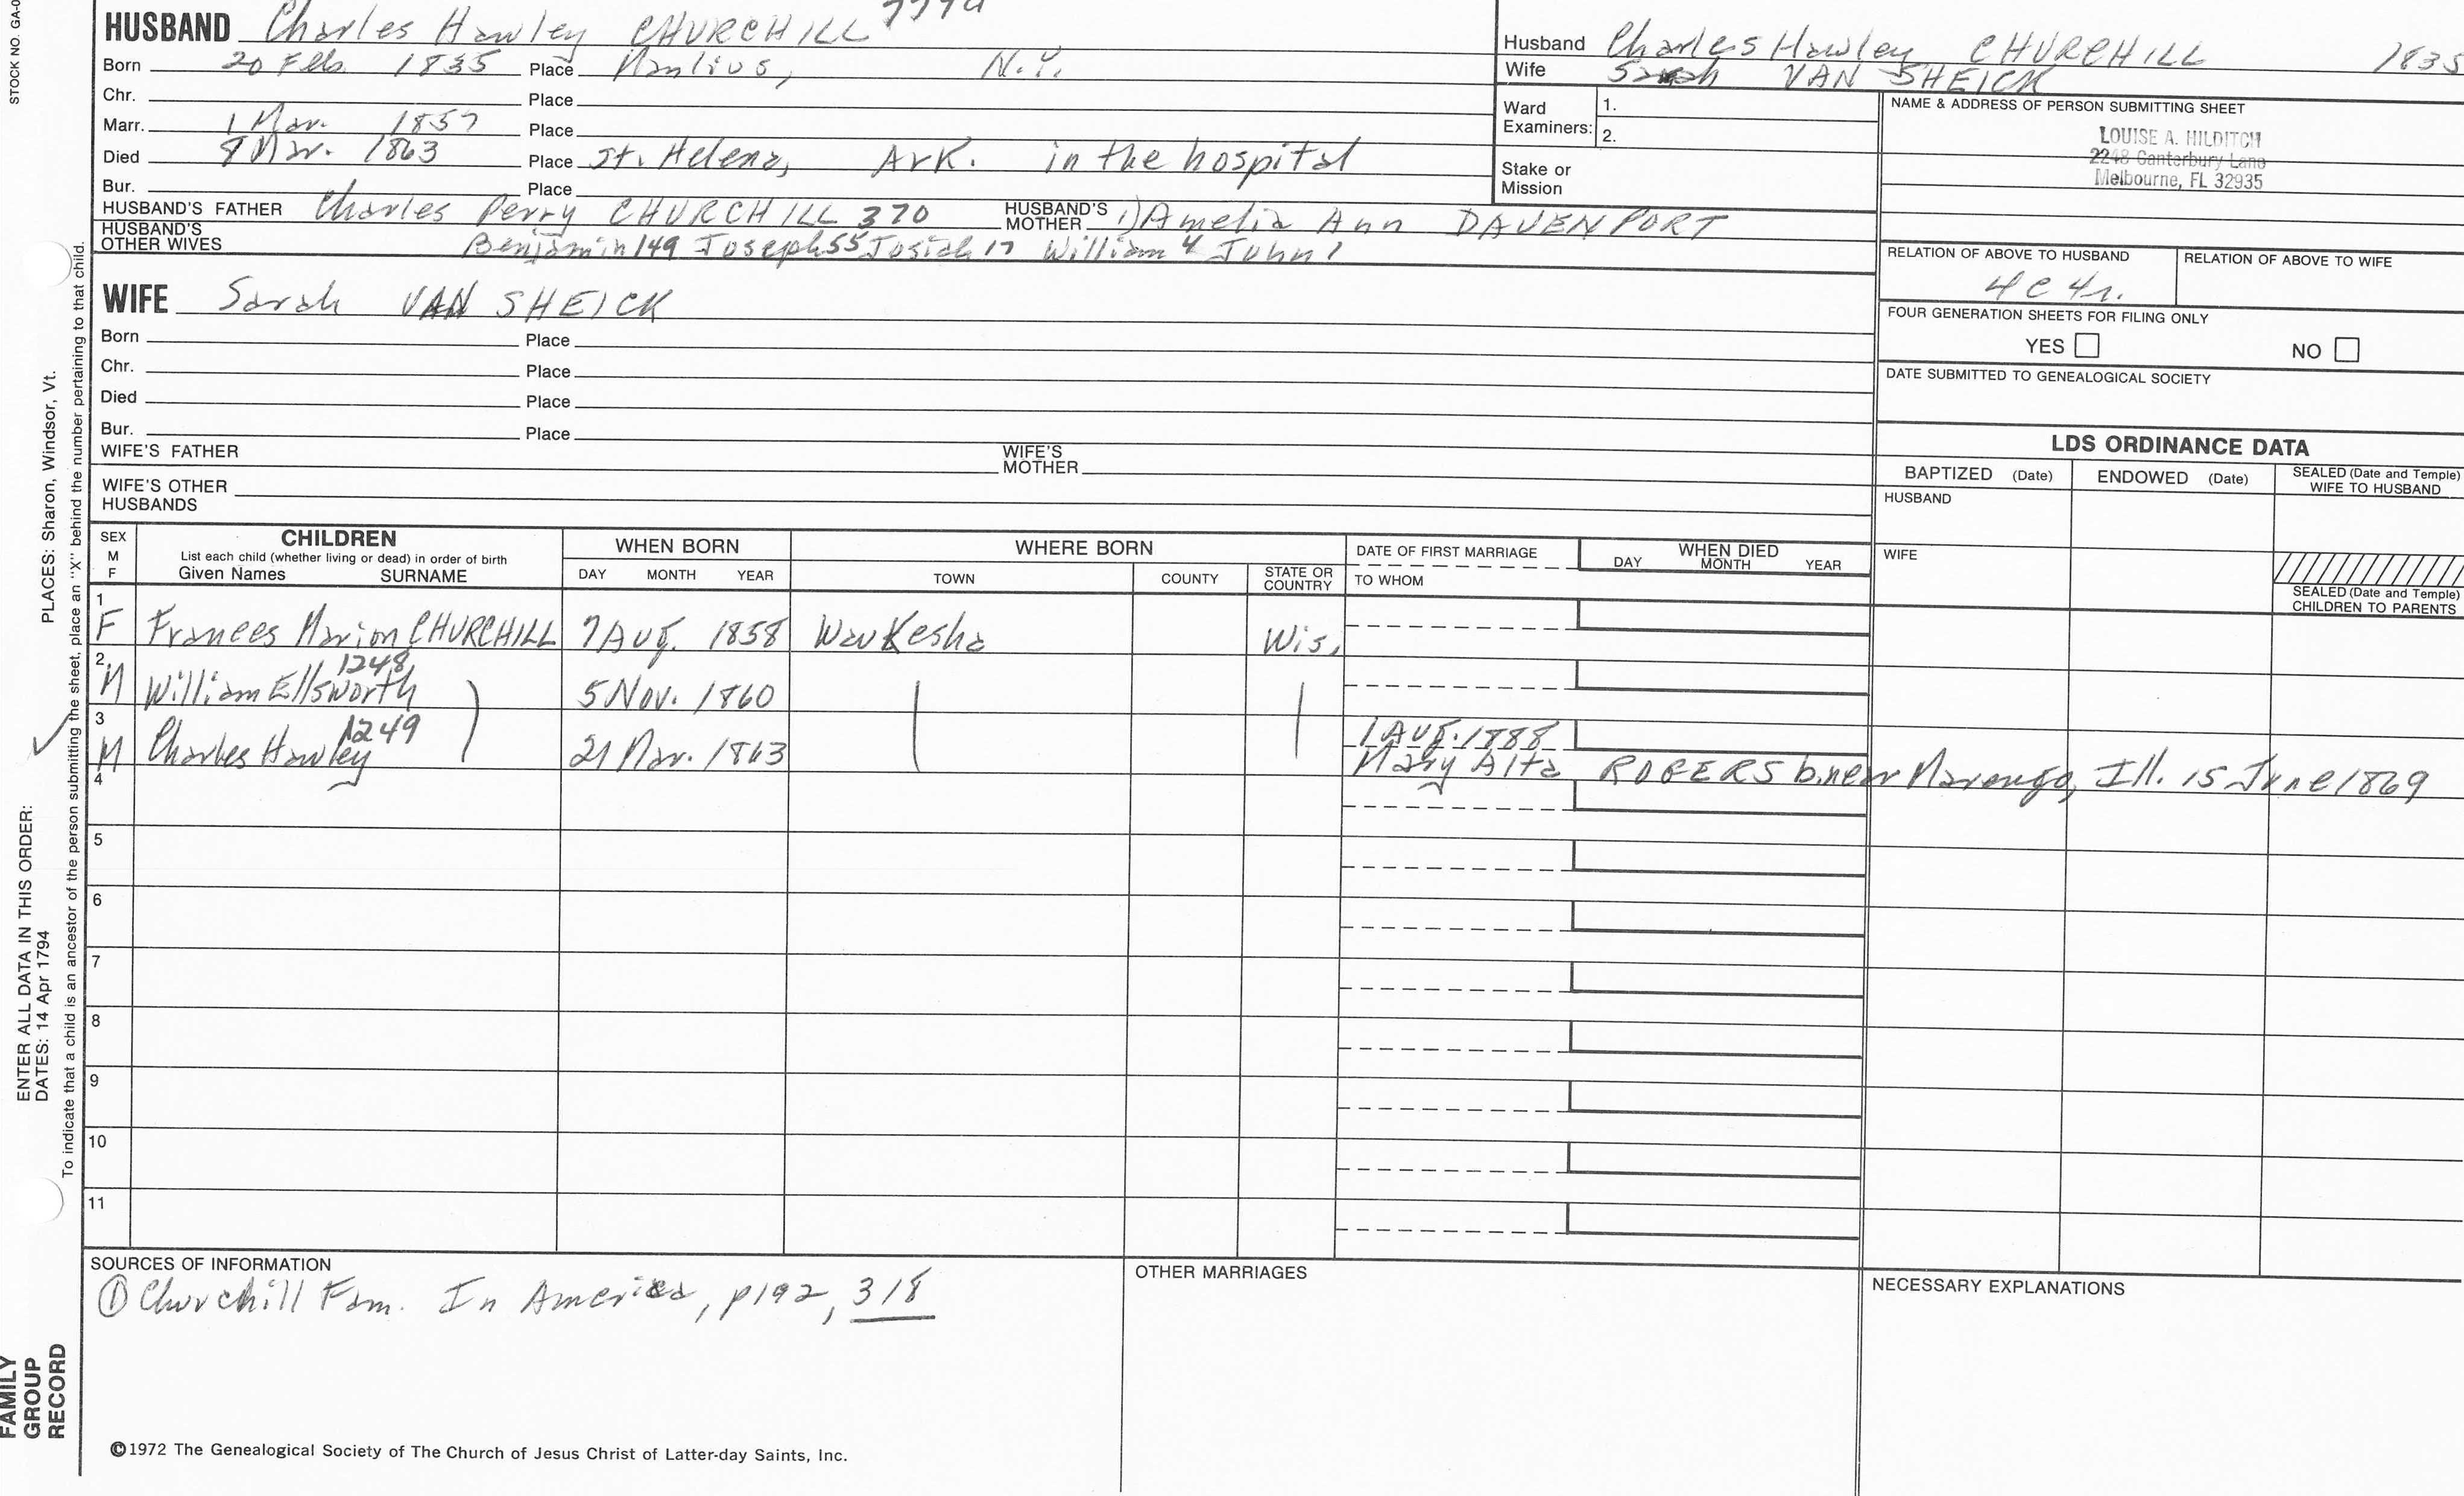 STOCK NO. GA-0
HUSBAND Charles Hawley CHURCHILL
Born 20 Feb. 1835 Place Manlius, N.Y.
Chr. Place
Marr. 1 Mar. 1857 Place
Died 8 Mar. 1863 Place St. Helena, Ark. in the hospital
Bur. Place
HUSBAND'S FATHER Charles Perry CHURCHILL 370 HUSBAND'S MOTHER 1) Amelia Ann DAVENPORT
HUSBAND'S OTHER WIVES Benjamin 149 Joseph 55 Josiah 17 William 4 John 1
WIFE Sarah VAN SHEICK
Born Place
Chr. Place
Died Place
Bur. Place
WIFE'S FATHER WIFE'S MOTHER
WIFE'S OTHER HUSBANDS
Husband Charles Hawley CHURCHILL 1835
Wife Sarah VAN SHEICK
Ward Examiners: 1.
2.
Stake or Mission
NAME & ADDRESS OF PERSON SUBMITTING SHEET
LOUISE A. HILDITCH
2248 Canterbury Lane
Melbourne, FL 32935
RELATION OF ABOVE TO HUSBAND RELATION OF ABOVE TO WIFE
4c4r.
FOUR GENERATION SHEETS FOR FILING ONLY
YES NO
DATE SUBMITTED TO GENEALOGICAL SOCIETY
LDS ORDINANCE DATA
BAPTIZED (Date) ENDOWED (Date) SEALED (Date and Temple) WIFE TO HUSBAND
HUSBAND
WIFE
SEALED (Date and Temple) CHILDREN TO PARENTS
SEX M F
CHILDREN
List each child (whether living or dead) in order of birth
Given Names SURNAME
WHEN BORN
DAY MONTH YEAR
WHERE BORN
TOWN COUNTY STATE OR COUNTRY
DATE OF FIRST MARRIAGE
TO WHOM
WHEN DIED
DAY MONTH YEAR
1
F Frances Marion CHURCHILL 7 Aug. 1858 Waukesha Wis.
2 1248
M William Ellsworth 5 Nov. 1860
3 1249 1 Aug. 1888
M Charles Hawley 21 Mar. 1863 Mary Alta ROGERS b. near Marengo, Ill. 15 June 1869
4
5
6
7
8
9
10
11
SOURCES OF INFORMATION
① Churchill Fam. In America, p192, 318
OTHER MARRIAGES
NECESSARY EXPLANATIONS
©1972 The Genealogical Society of The Church of Jesus Christ of Latter-day Saints, Inc.
PLACES: Sharon, Windsor, Vt.
To indicate that a child is an ancestor of the person submitting the sheet, place an "X" behind the number pertaining to that child.
ENTER ALL DATA IN THIS ORDER:
DATES: 14 Apr 1794
FAMILY
GROUP
RECORD